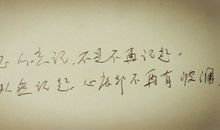 忘记，不是不再记起，
记起，心底却不再有波澜